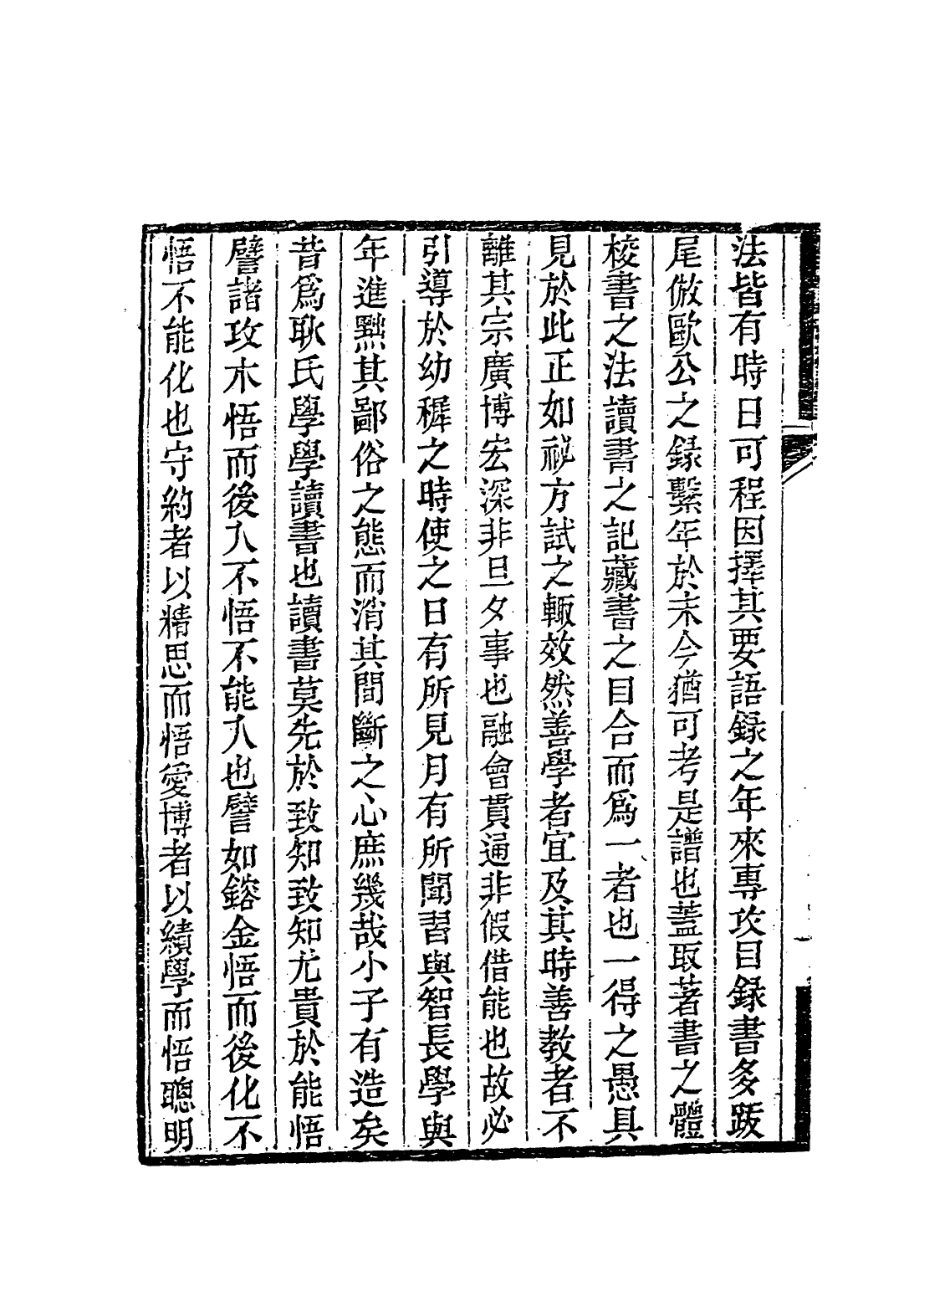 法皆有時日可程因擇其要語錄之年來專攻目錄書多跋
尾倣歐公之錄繫年於末今猶可考是譜也蓋取著書之體
校書之法讀書之記藏書之目合而爲一者也一得之愚具
見於此正如祕方試之輒效然善學者宜及其時善教者不
離其宗廣博宏深非旦夕事也融會貫通非假借能也故必
引導於幼穉之時使之日有所見月有所聞習與智長學與
年進黜其鄙俗之態而消其間斷之心庶幾哉小子有造矣
昔爲耿氏學學讀書也讀書莫先於致知致知尤貴於能悟
譬諸攻木悟而後入不悟不能入也譬如鎔金悟而後化不
悟不能化也守約者以精思而悟愛博者以績學而悟聰明